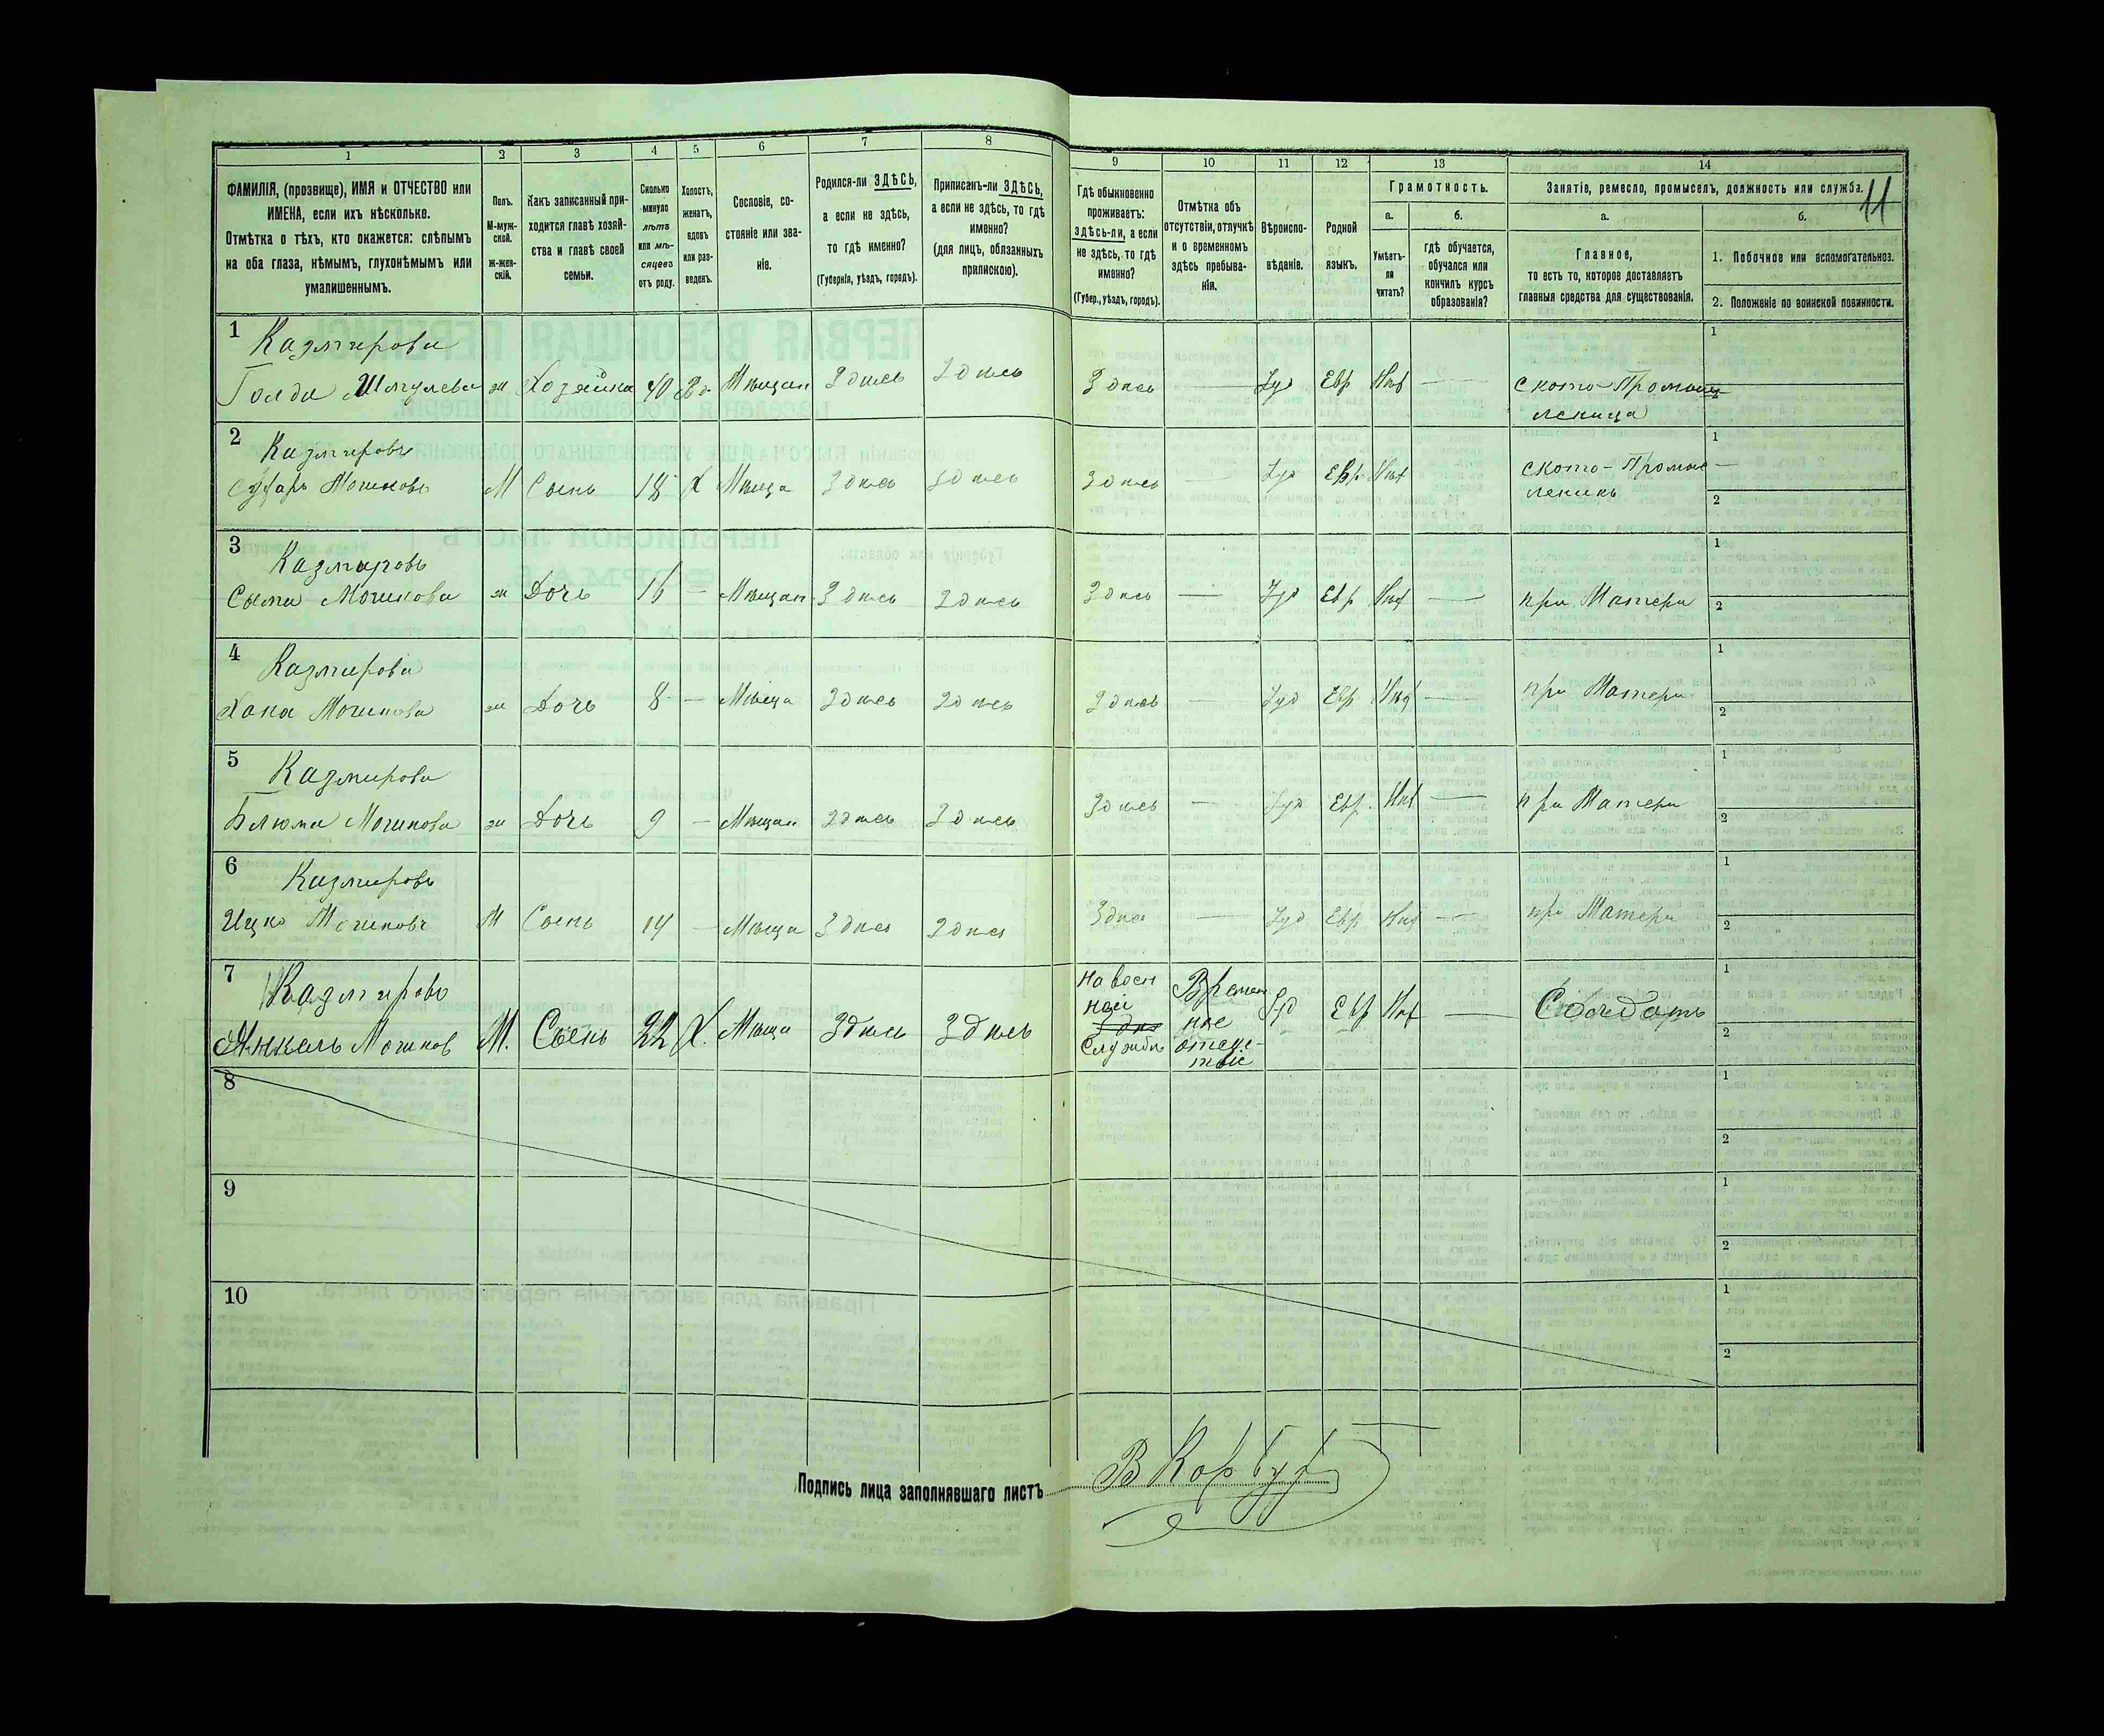 1 2 3 4 5 6 7 8 9 10 11 12 13 14
11
ФАМИЛІЯ, (прозвище), ИМЯ и ОТЧЕСТВО или
ИМЕНА, если ихъ нѣсколько.
Отмѣтка о тѣхъ, кто окажется: слѣпымъ
на оба глаза, нѣмымъ, глухонѣмымъ или
умалишеннымъ.
Полъ.
М-муж-
ской.
Ж-жен-
скій.
Какъ записанный при-
ходится главѣ хозяй-
ства и главѣ своей
семьи.
Сколько
минуло
лѣтъ
или мѣ-
сяцевъ
отъ роду.
Холостъ,
женатъ,
вдовъ
или раз-
веденъ.
Сословіе, со-
стояніе или зва-
ніе.
Родился-ли ЗДѢСЬ,
а если не здѣсь,
то гдѣ именно?
(Губернія, уѣздъ, городъ).
Приписанъ-ли ЗДѢСЬ,
а если не здѣсь, то гдѣ
именно?
(для лицъ, обязанныхъ
припискою).
Гдѣ обыкновенно
проживаетъ:
здѣсь-ли, а если
не здѣсь, то гдѣ
именно?
(Губер., уѣздъ, городъ).
Отмѣтка объ
отсутствіи, отлучкѣ
и о временномъ
здѣсь пребыва-
ніи.
Вѣроиспо-
вѣданіе.
Родной
языкъ.
Грамотность.
а.
Умѣетъ-
ли
читать?
б.
гдѣ обучается,
обучался или
кончилъ курсъ
образованія?
Занятіе, ремесло, промыселъ, должность или служба.
а.
Главное,
то есть то, которое доставляетъ
главныя средства для существованія.
б.
1. Побочное или вспомогательное.
2. Положеніе по воинской повинности.
1 Казмирова
Голда Шмулева ж Хозяйка 40 Вд Мѣщан Здѣсь Здѣсь Здѣсь — Іуд Евр Нѣт — Ското-Промыш
леница
2 Казмировъ
Мошковъ М Сынъ 18 Х Мѣща Здѣсь Здѣсь Здѣсь — Іуд Евр Нѣт Ското-Промыс —
леникъ
3 Казмировъ
Сыма Мошкова ж Дочь 16 — Мѣщан Здѣсь Здѣсь Здѣсь — Іуд Евр Нѣт — при Матери
4 Казмирова
Хана Мошкова ж Дочь 8 — Мѣща Здѣсь Здѣсь Здѣсь — Іуд Евр Нѣт — при Матери
5 Казмирова
Блюма Мошкова ж Дочь 9 — Мѣщан Здѣсь Здѣсь Здѣсь — Іуд Евр. Нѣт — при Матери
6 Казмировъ
Ицко Мошковъ М Сынъ 14 — Мѣща Здѣсь Здѣсь Здѣсь — Іуд Евр Нѣт — при Матери
7 Казмировъ
Янкель Мошков М. Сынъ 22 Х. Мѣща Здѣсь Здѣсь
На воен
ной
Службѣ
Времен
ное
отсус-
твіе
Іуд Евр Нѣт — Солдатъ
8
9
10
Подпись лица заполнявшаго листъ